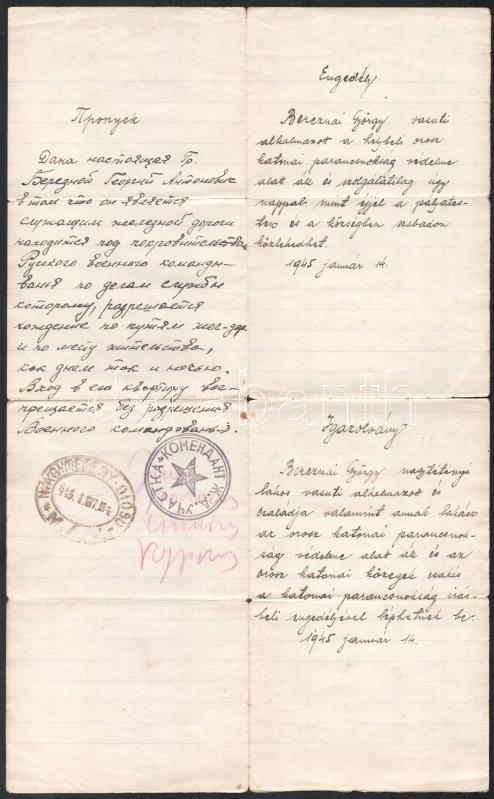 Пропуск
Дана настоящая Гр.
Бередной Георгий Антонович
в том что он является
служащим железной дороги
находится под
Руского военного командо-
ванья по делам службы
которому, разрешается
хождение по путям жел-дор
и по месту жительства,
как днем так и ночью.
Вход в его квартиру вос-
прещается без разрешения
Военного командованья.
КОМЕНДАНТ Ж.Д. УЧАСТКА
Engedély
Bereznai György vasuti
alkalmazott a helybeli orosz
katonai parancsnokság védelme
alatt áll és szolgálatilag úgy
nappal mint éjjel a pályates-
ten és a községben szabadon
közlekedhet.
1945 január 14.
Igazolvány
Bereznai György nagytétényi
lakos vasuti alkalmazott és
családja valamint annak lakása
az orosz katonai parancsnok-
ság védelme alatt áll és az
orosz katonai közegek csakis
a katonai parancsnokság irás-
beli engedélyével léphetnek be.
1945 január 14.
darabanth